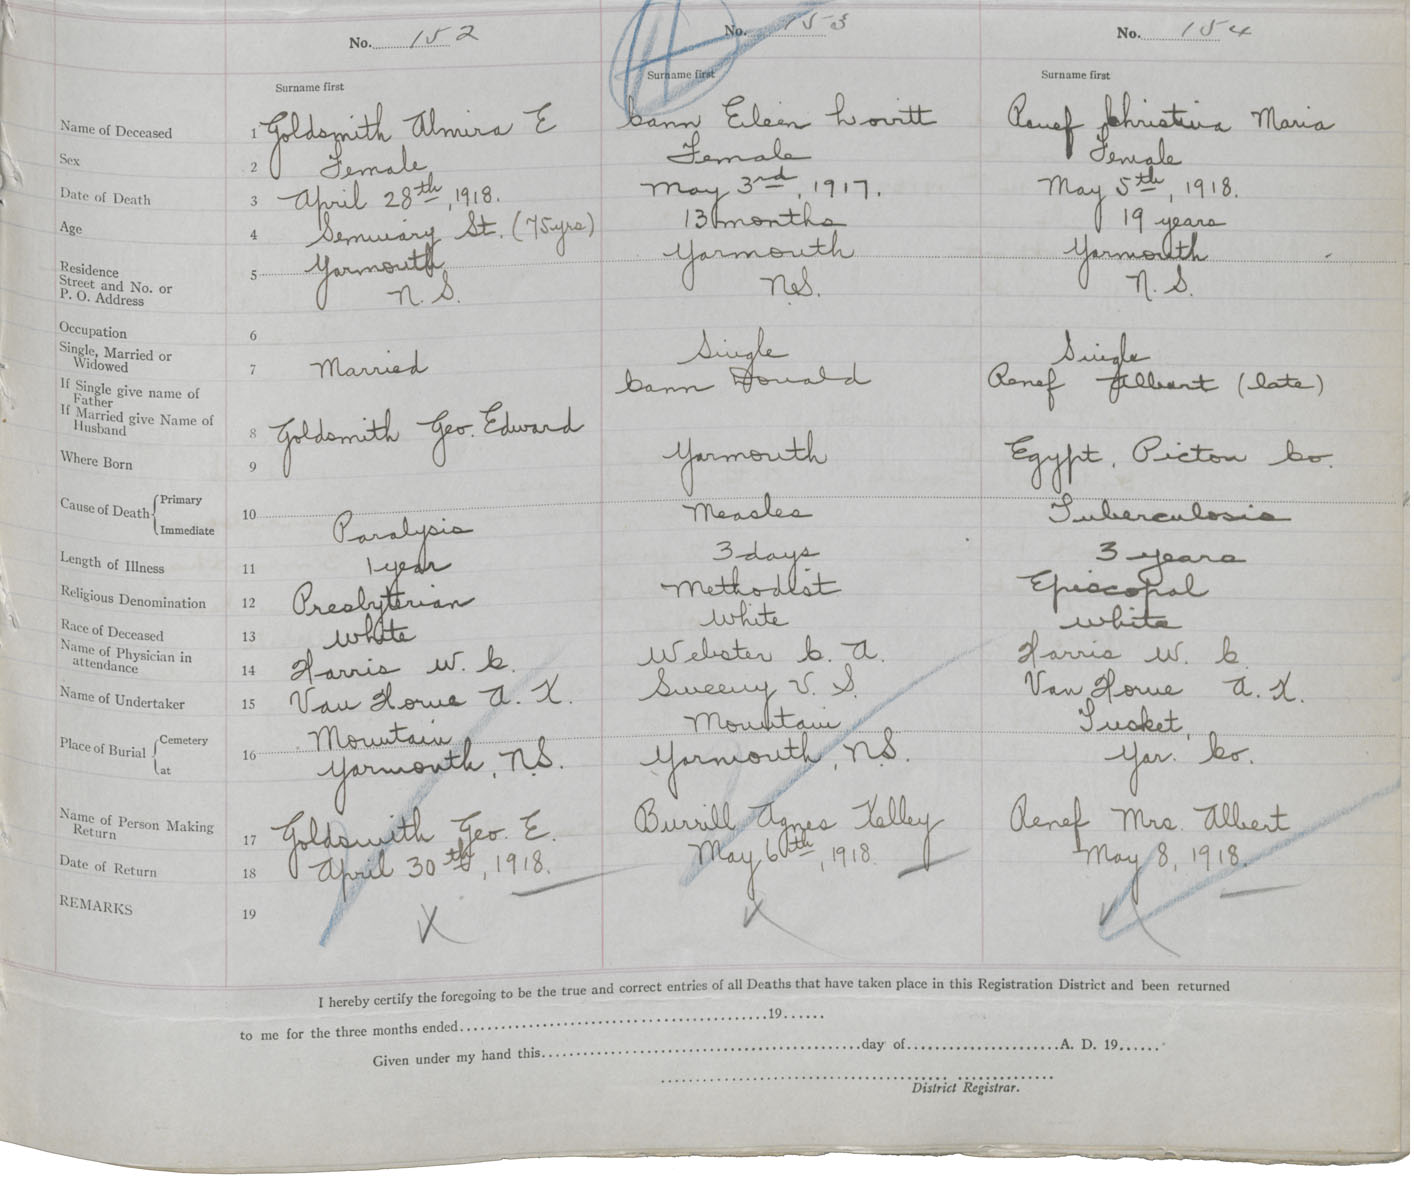 No. 152 No. 153 No. 154
Surname first Surname first Surname first
Name of Deceased 1 Goldsmith Almira E Cann Eileen Lovitt Renef Christina Maria
Sex 2 Female Female Female
Date of Death 3 April 28th, 1918. May 3rd, 1917. May 5th, 1918.
Age 4 Seminary St. (75yrs) 13 months 19 years
Residence Street and No. or P. O. Address 5 Yarmouth Yarmouth Yarmouth
N. S. N.S. N. S.
Occupation 6
Single, Married or Widowed 7 Married Single Single
If Single give name of Father Cann Donald Renef Albert (late)
If Married give Name of Husband 8 Goldsmith Geo. Edward
Where Born 9 Yarmouth Egypt, Picton Co.
Cause of Death Primary Immediate 10 Paralysis Measles Tuberculosis
Length of Illness 11 1 year 3 days 3 years
Religious Denomination 12 Presbyterian Methodist Episcopal
Race of Deceased 13 White White White
Name of Physician in attendance 14 Harris W. C. Webster C. A. Harris W. C.
Name of Undertaker 15 Van Horne A. K. Sweeny V. S. Van Horne A. K.
Place of Burial Cemetery at 16 Mountain Mountain Tusket,
Yarmouth, N.S. Yarmouth, N.S. Yar. Co.
Name of Person Making Return 17 Goldsmith Geo. E. Burrill Agnes Kelley Renef Mrs. Albert
Date of Return 18 April 30th, 1918. May 6th, 1918. May 8, 1918.
REMARKS 19
I hereby certify the foregoing to be the true and correct entries of all Deaths that have taken place in this Registration District and been returned
to me for the three months ended 19
Given under my hand this day of A. D. 19
District Registrar.